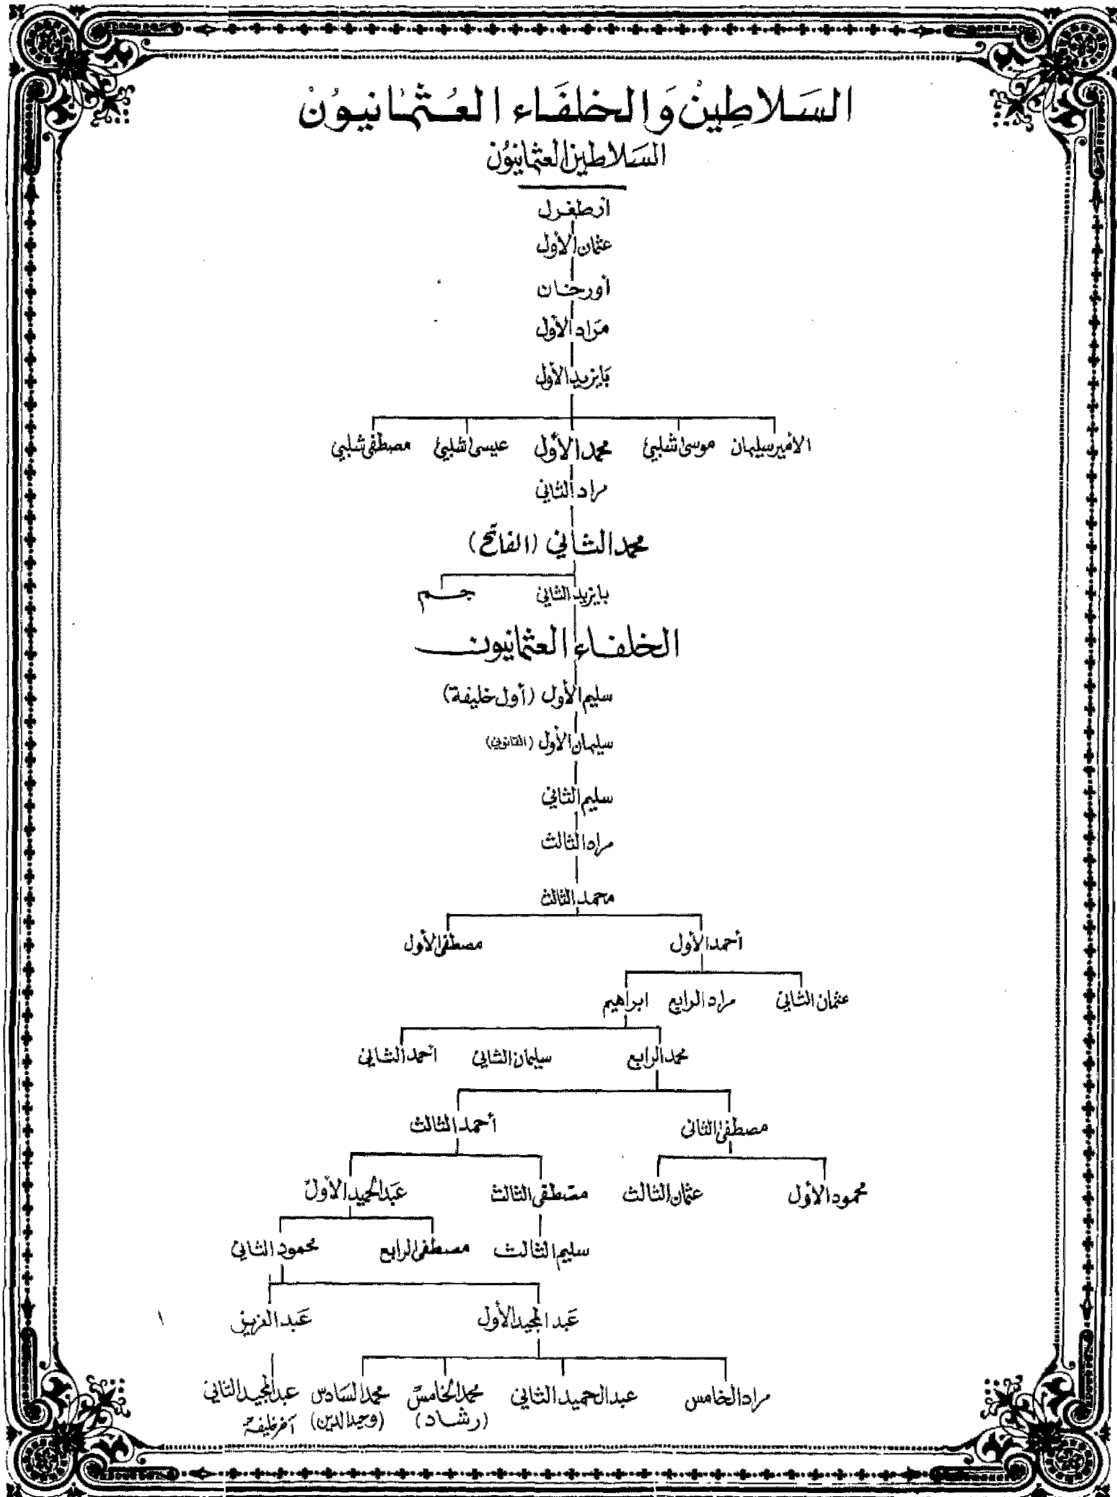 السَلاطِينْ وَالخلفَاء العُثمَانيوُنْ
السَلاطين العثمانيوُن
أرطغرل
عثمان الأول
أورخان
مَراد الأول
بَايزيد الأول
الأمير سليمان موسى شلبي محمد الأول عيسى شلبي مصطفى شلبي
مراد الثاني
محمد الثاني (الفاتح)
بايزيد الثاني جم
الخلفاء العثمانيون
سليم الأول (أول خليفة)
سليمان الأول (القانوني)
سليم الثاني
مراد الثالث
محمد الثالث
أحمد الأول مصطفى الأول
عثمان الثاني مراد الرابع ابراهيم
محمد الرابع سليمان الثاني أحمد الثاني
مصطفى الثاني أحمد الثالث
محمود الأول عثمان الثالث مصطفى الثالث عَبد الحميد الأول
سليم الثالث مصطفى الرابع محمود الثاني
عَبد المجيد الأول عَبد العزيز
مراد الخامس عبد الحميد الثاني محمد الخامس محمد السَادس عبد المجيد الثاني
(رشاد) (وحيد الدين) آخر خليفة